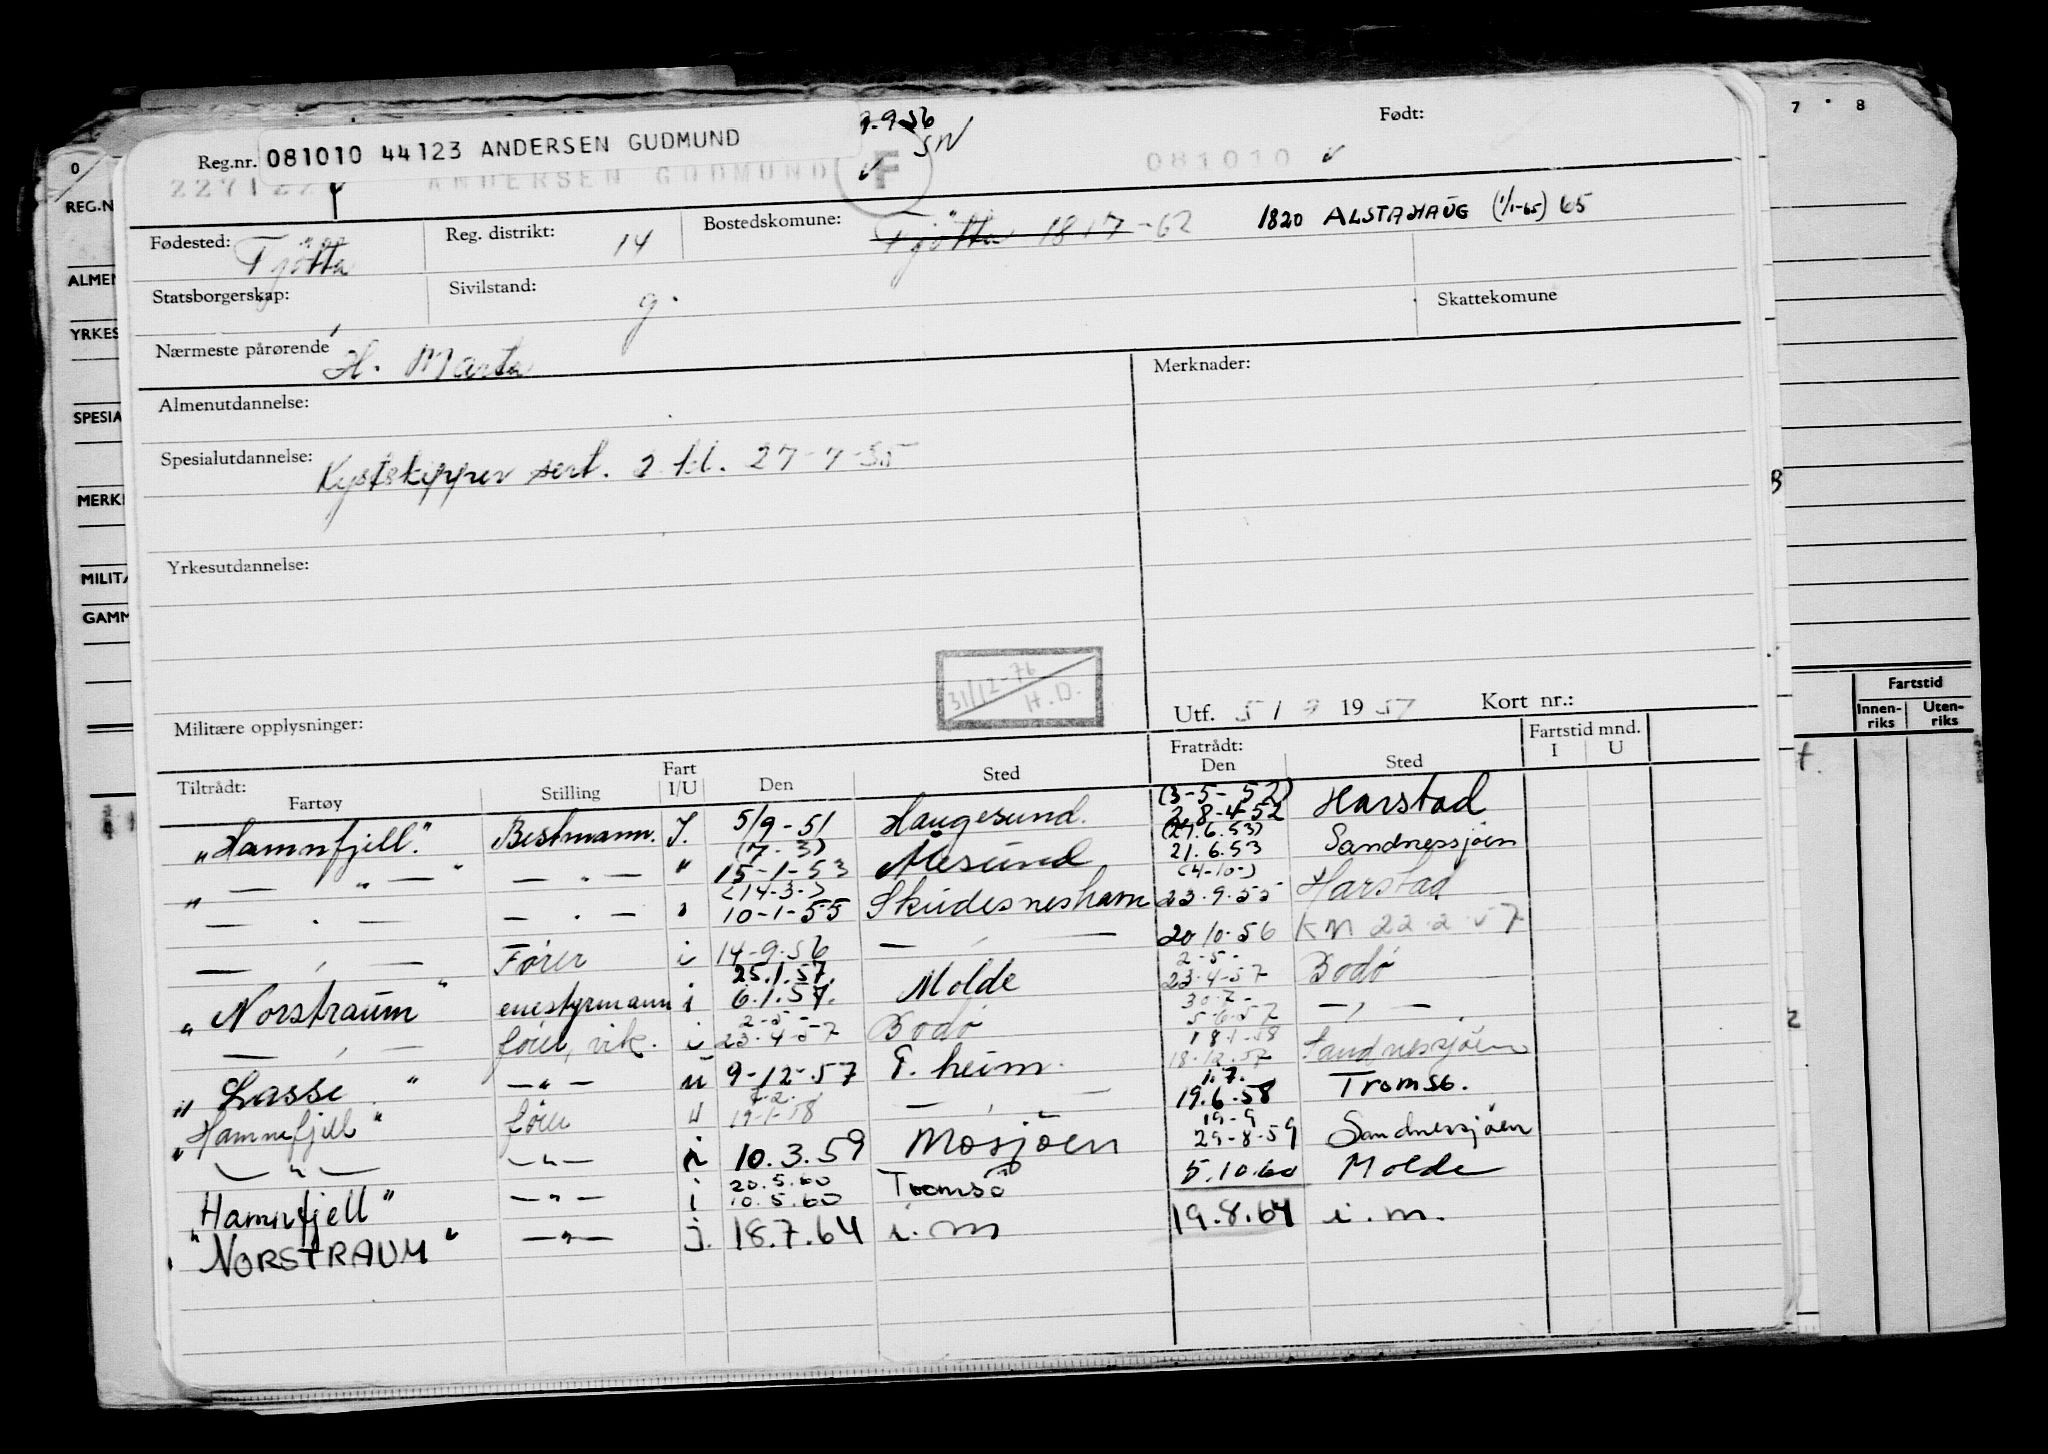 7 8
0
REG.N
ALMEN
YRKES
SPESIA
MERK
MILITA
GAMM
Fartstid
Innenriks Utenriks
Reg.nr. 081010 44123 ANDERSEN GUDMUND 9.9.56 SN Født:
ANDERSEN GUDMUND F 081010
Fødested: Tjøtta Reg. distrikt: 14 Bostedskomune: Tjøtta 1817-62 1820 ALSTAHAUG (1/1-65) 65
Statsborgerskap: Sivilstand: g. Skattekomune
Nærmeste pårørende H. Marta
Almenutdannelse: Merknader:
Spesialutdannelse: Kystskipper sert. 2 kl. 27-7-55
Yrkesutdannelse:
31/12-76 H.D.
Militære opplysninger: Utf. 5/9 1957 Kort nr.:
Tiltrådt: Fartøy Stilling Fart I/U Den Sted Fratrådt: Den Sted Fartstid mnd. I U
"Hamnfjell" Bestmann. I. 5/9-51 Haugesund. (3-5-52) 28-4-52 Harstad
" — " — " — " — " (7-3) 15-1-53 Ålesund (27.6.53) 21.6.53 Sandnessjøen
— " — — " — " (14-3-) 10-1-55 Skudesneshavn (4-10-) 23.9.55 Harstad
— " — Fører i 14-9-56 — " — 20/10-56 KM 22.2.57
"Norstraum" enestyrmann i 25.1.57. 6.1.57. Molde 2-5- 23-4-57 Bodø
— " — fører, vik. i 2-5- 23-4-57 Bodø 30.7- 5-6-57 — " —
"Lasse" — " — u 9-12-57 T.heim. 18-1-58 18-12-57 Sandnessjøen
"Hamnefjell" fører u 19-1-58 — " — 1.7. 19.6.58 Tromsö.
— " — — " — i 10.3.59 Mosjøen 19-9 29-8-59 Sandnessjøen
"Hamnfjell" — " — i 20.5.60 10.5.60 Tromsö 5.10.60 Molde
"NORSTRAUM" — " — j. 18.7.64 i.m 19.8.64 i.m.